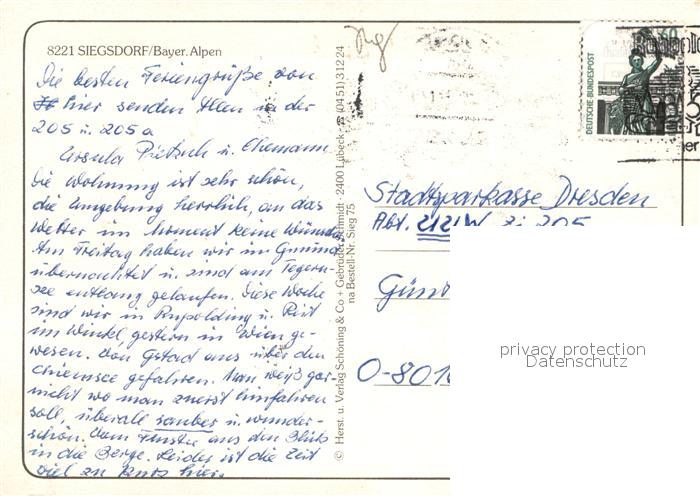 8221 SIEGSDORF/Bayer. Alpen
Die besten Feriengrüße von
hier senden Allen in der
205 u. 205a
Ursula Pietzsch u. Ehemann
Die Wohnung ist sehr schön,
die Umgebung herrlich, an das
Wetter im Moment keine Wünsche.
Am Freitag haben wir in Gmund
übernachtet u. sind am Tegern-
see entlang gelaufen. Diese Woche
sind wir in Rupolding u. Reit
im Winkel, gestern in Wien ge-
wesen. Von Gstad aus über den
Chiemsee gefahren. Man weiß gar-
nicht wo man zuerst hinfahren
soll, überall sauber u. wunder-
schön. Vom Fenster aus den Blick
in die Berge. Leider ist die Zeit
viel zu kurz hier.
© Herst. u. Verlag Schöning & Co + Gebrüder Schmidt · 2400 Lübeck · (0451) 31224
na Bestell-Nr. Sieg 75
60
DEUTSCHE BUNDESPOST
Stadtsparkasse Dresden
Abt. 2121W Zi 205
Gün
O-801
privacy protection
Datenschutz